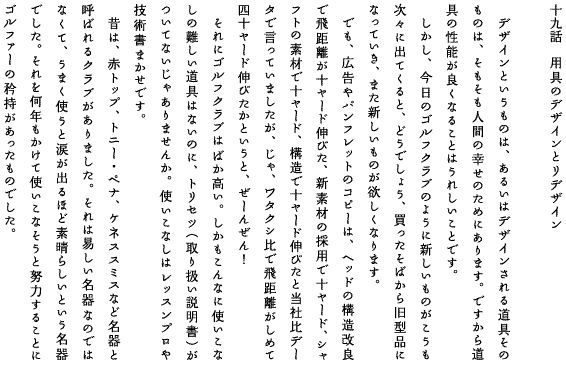 十九話　用具のデザインとリデザイン
　デザインというものは、あるいはデザインされる道具その
ものは、そもそも人間の幸せのためにあります。ですから道
具の性能が良くなることはうれしいことです。
　しかし、今日のゴルフクラブのように新しいものがこうも
次々に出てくると、どうでしょう、買ったそばから旧型品に
なっていき、また新しいものが欲しくなります。
　でも、広告やパンフレットのコピーは、ヘッドの構造改良
で飛距離が十ヤード伸びた、新素材の採用で十ヤード、シャ
フトの素材で十ヤード、構造で十ヤード伸びたと当社比デー
タで言っていましたが、じゃ、ワタクシ比で飛距離がしめて
四十ヤード伸びたかというと、ぜーんぜん！
　それにゴルフクラブはばか高い。しかもこんなに使いこな
しの難しい道具はないのに、トリセツ（取り扱い説明書）が
ついてないじゃありませんか。使いこなしはレッスンプロや
技術書まかせです。
　昔は、赤トップ、トニー・ペナ、ケネススミスなど名器と
呼ばれるクラブがありました。それは易しい名器なのでは
なくて、うまく使うと涙が出るほど素晴らしいという名器
でした。それを何年もかけて使いこなそうと努力することに
ゴルファーの矜持があったものでした。